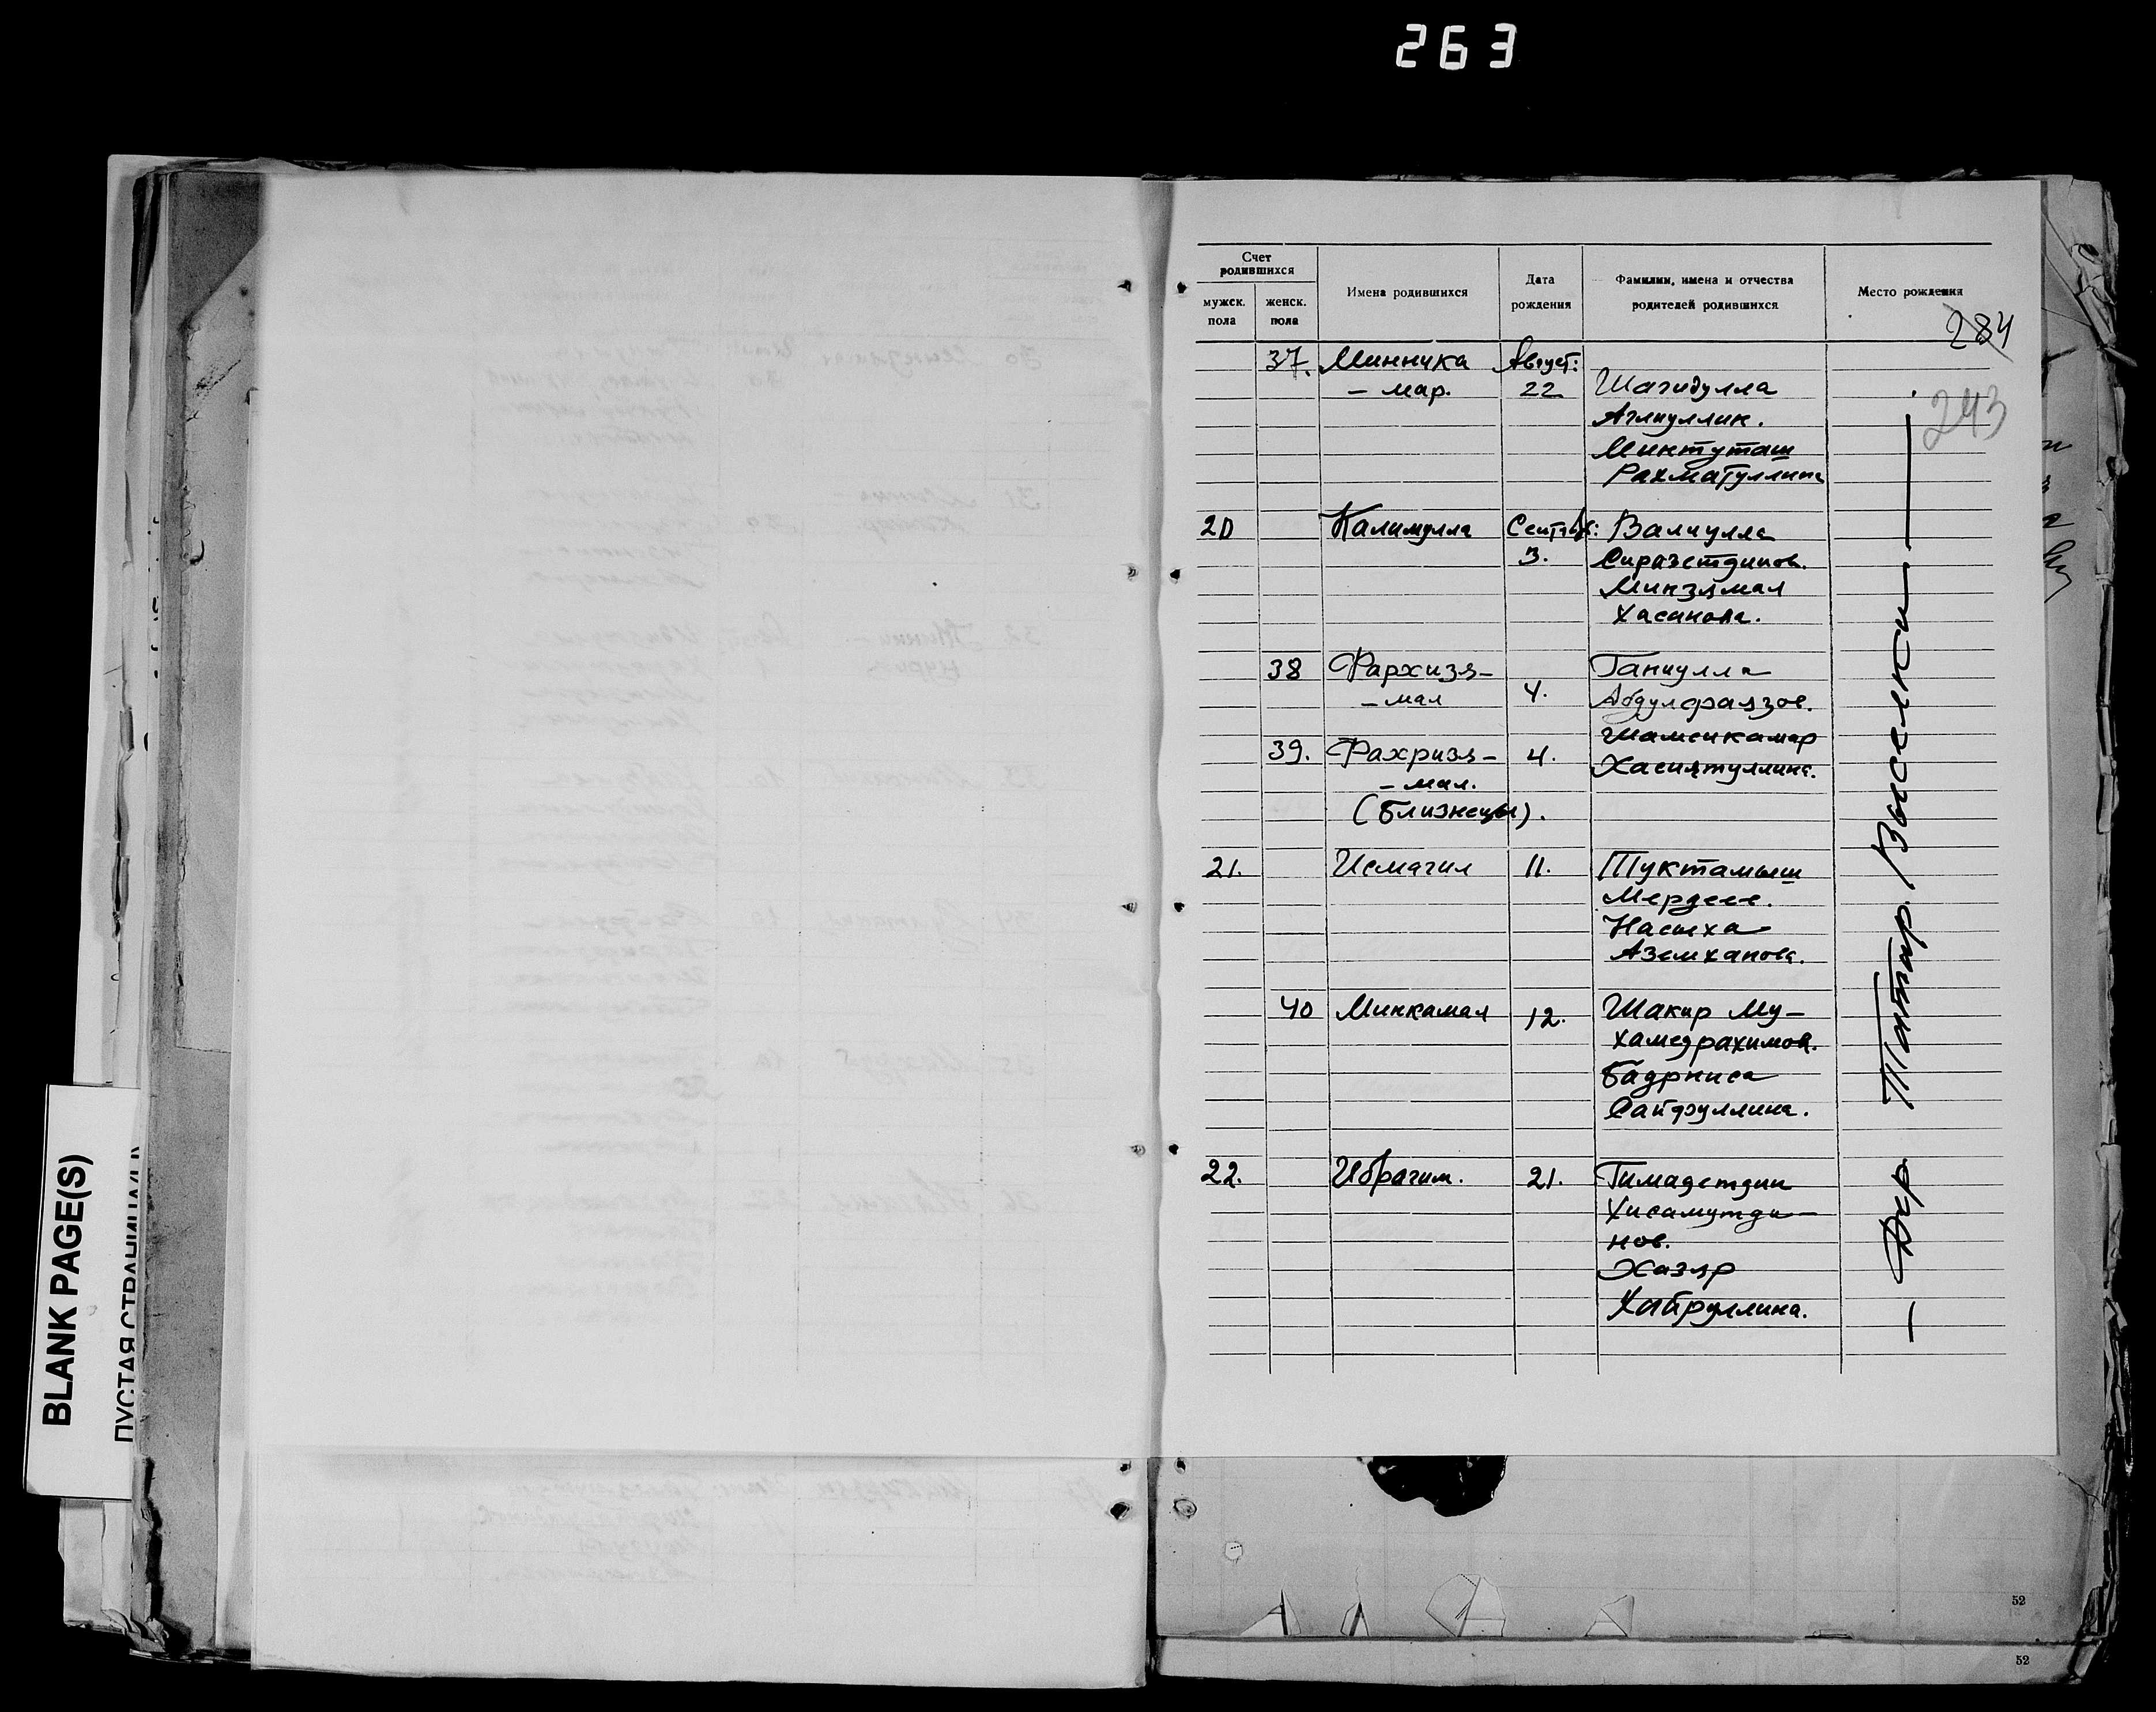 263
Счет
родившихся
мужск.
пола
женск.
пола
Имена родившихся
Дата
рождения
Фамилии, имена и отчества
родителей родившихся
Место рождения
284
243
37. Минника Август:
- мар. 22 Шагидулла
Аглиуллин.
Минтуташ
Рахматуллина
20 Калимулла Сентябр: Валиулла
3. Сиразетдинов.
Минзямал
Хасанова.
38 Фархизя- Ганиулла
- мал 4. Абдулфаязов.
Шамсикамар
39. Фахризя- 4. Хасиятуллина.
- мал.
(близнецы).
21. Исмагил 11. Туктамыш
Мердеев.
Насыха
Аземханова.
40 Минкамал 12. Шакир Му-
хамедрахимов.
Бадрниса
Сайфуллина.
22. Ибрагим. 21. Гимадетдин
Хисамутди-
нов.
Хазяр
Хайруллина.
— Дер Татар. Выселки —
BLANK PAGE(S)
ПУСТАЯ СТРАНИЦА
52
52